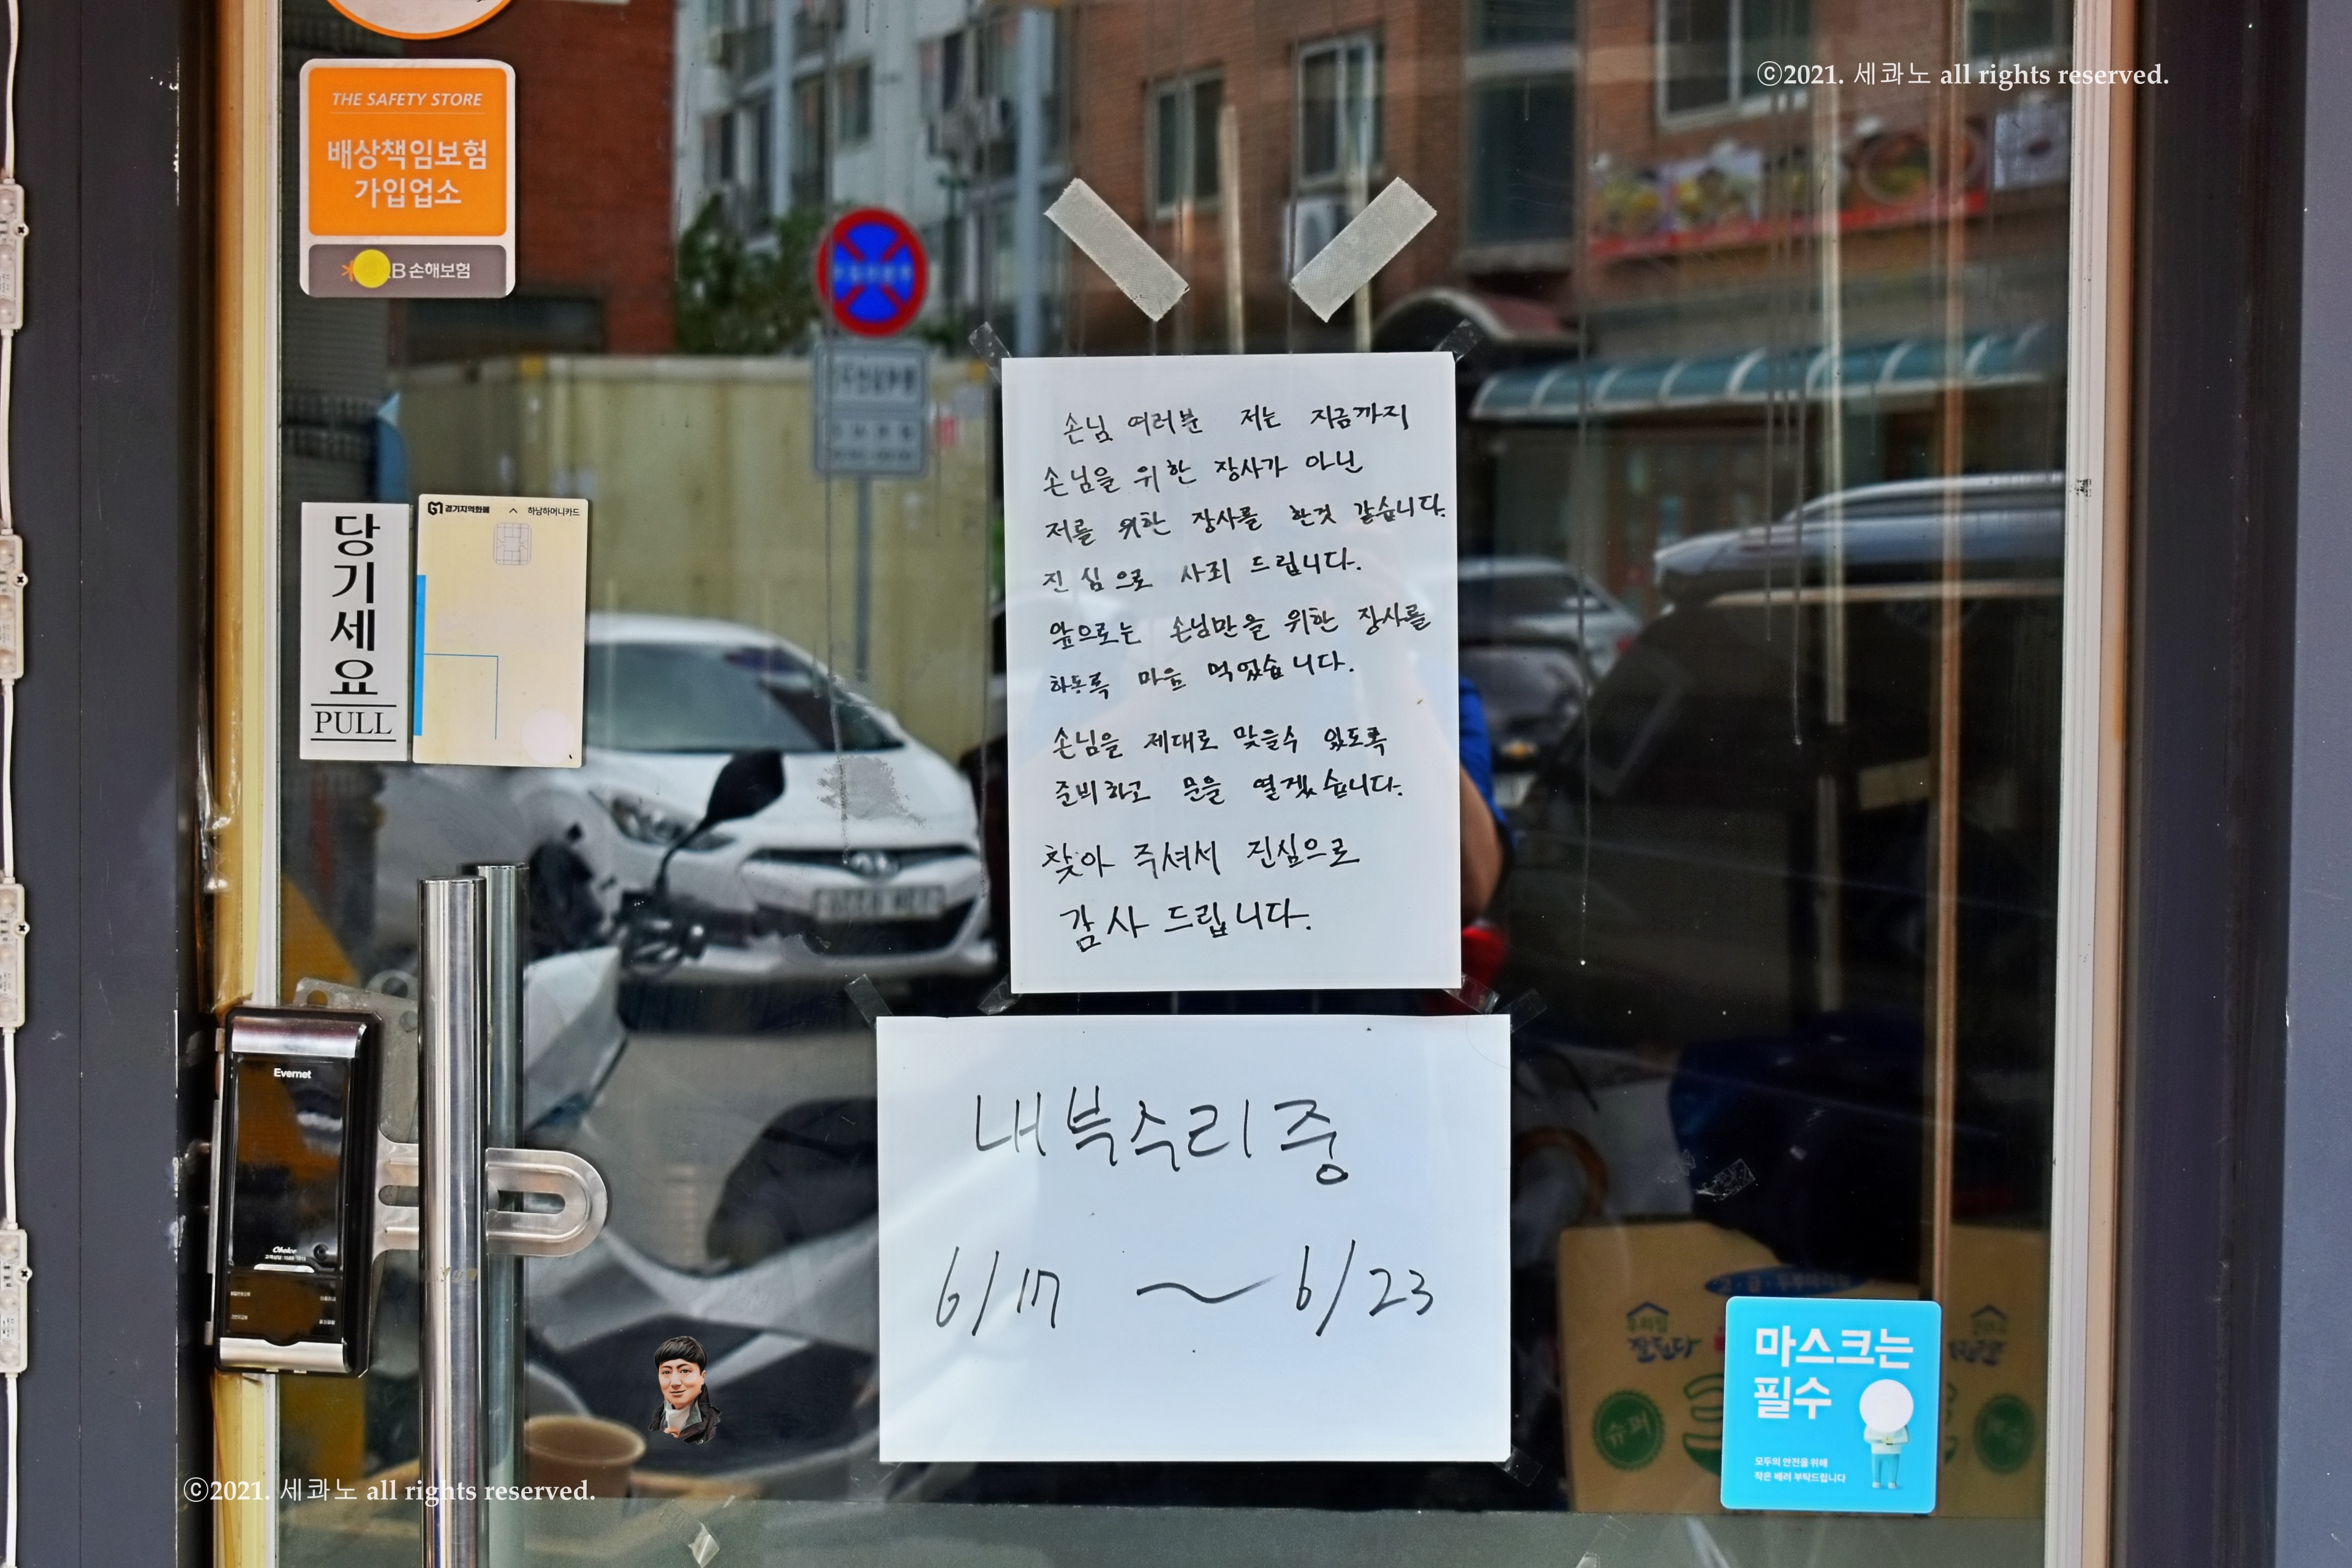 ⓒ2021. 세콰노 all rights reserved.
THE SAFETY STORE
배상책임보험
가입업소
B손해보험
당기세요
PULL
경기지역화폐
하남하머니카드
손님 여러분 저는 지금까지
손님을 위한 장사가 아닌
저를 위한 장사를 한것 같습니다.
진심으로 사죄 드립니다.
앞으로는 손님만을 위한 장사를
하도록 마음 먹었습니다.
손님을 제대로 맞을수 있도록
준비하고 문을 열겠습니다.
찾아 주셔서 진심으로
감사 드립니다.
내부수리중
6/17 ~ 6/23
Evernet
Choice
슈퍼
마스크는
필수
모두의 안전을 위해
작은 배려 부탁드립니다
ⓒ2021. 세콰노 all rights reserved.